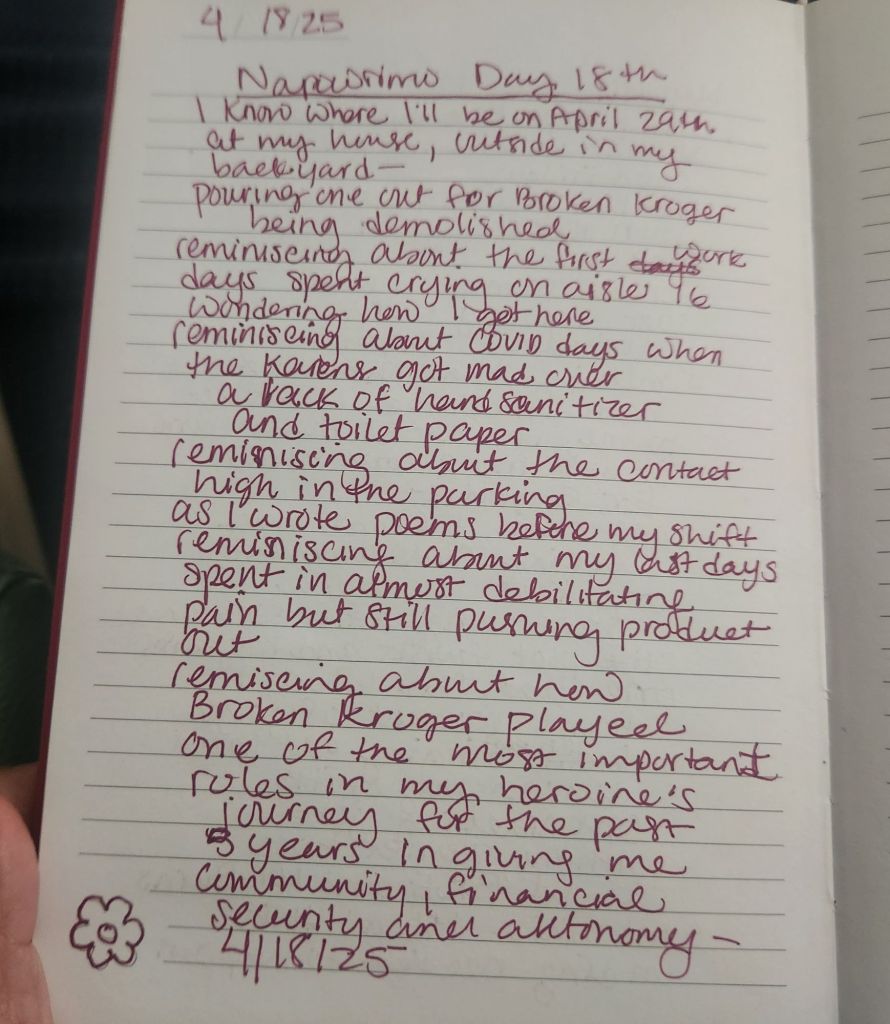 4/18/25
Napowrimo Day 18th
I know where I'll be on April 29th
at my house, outside in my
backyard—
pouring one out for Broken Kroger
being demolished
reminiscing about the first days work
days spent crying on aisle 16
wondering how I got here
reminiscing about COVID days when
the Karens got mad over
a lack of hand sanitizer
and toilet paper
reminiscing about the contact
high in the parking
as I wrote poems before my shift
reminiscing about my last days
spent in almost debilitating
pain but still pushing product
out
remiscing about how
Broken Kroger played
one of the most important
roles in my heroine's
journey for the past
5 years in giving me
community, financial
security and autonomy—
4/18/25